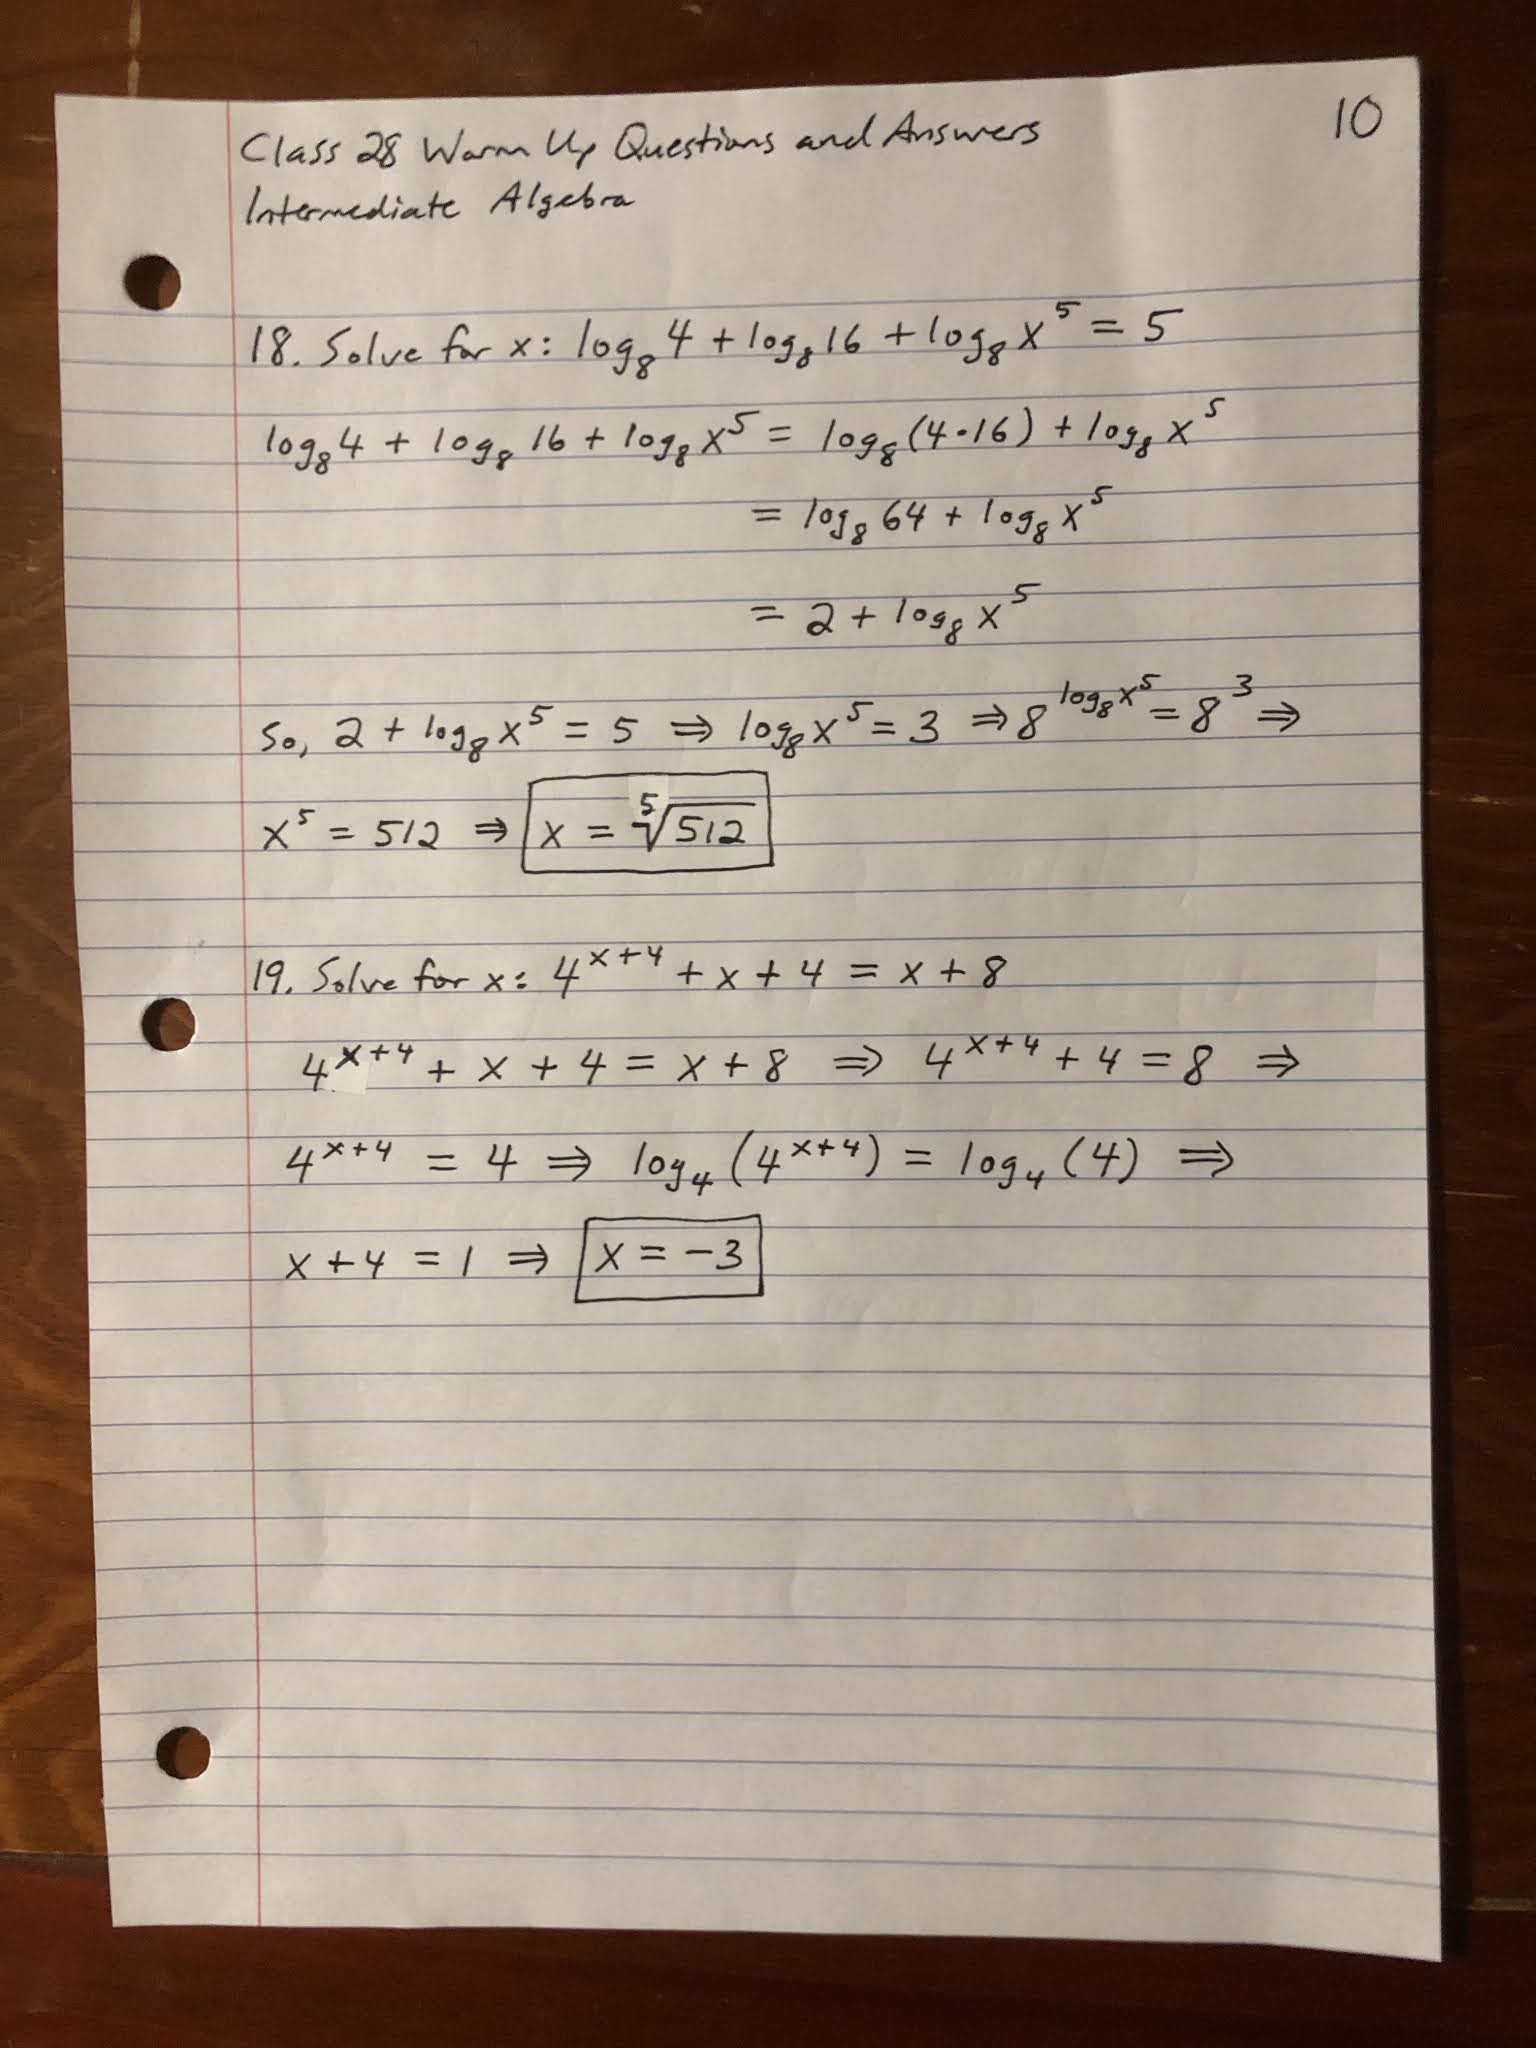 10
Class 28 Warm Up Questions and Answers
Intermediate Algebra
18. Solve for x: log₈ 4 + log₈ 16 + log₈ x⁵ = 5
log₈ 4 + log₈ 16 + log₈ x⁵ = log₈ (4·16) + log₈ x⁵
= log₈ 64 + log₈ x⁵
= 2 + log₈ x⁵
So, 2 + log₈ x⁵ = 5 ⇒ log₈ x⁵ = 3 ⇒ 8^(log₈ x⁵) = 8³ ⇒
x⁵ = 512 ⇒ x = ⁵√512
19. Solve for x: 4ˣ⁺⁴ + x + 4 = x + 8
4ˣ⁺⁴ + x + 4 = x + 8 ⇒ 4ˣ⁺⁴ + 4 = 8 ⇒
4ˣ⁺⁴ = 4 ⇒ log₄ (4ˣ⁺⁴) = log₄ (4) ⇒
x + 4 = 1 ⇒ x = -3